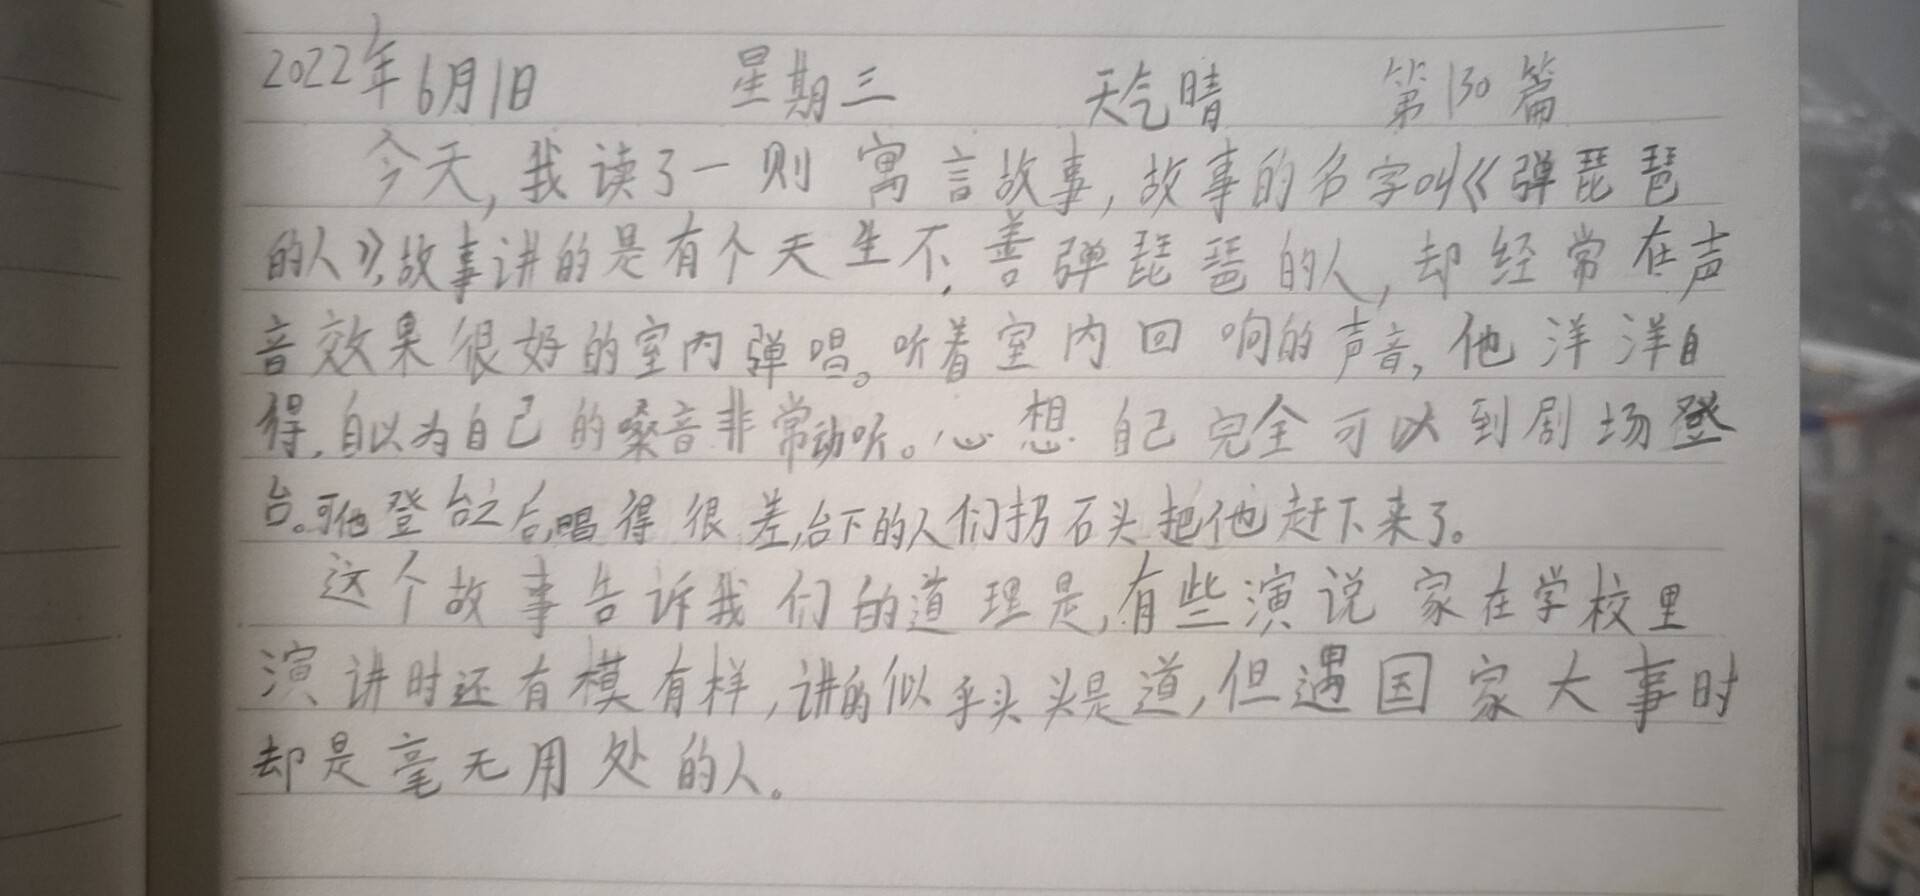 2022年6月1日 星期三 天气晴 第130篇
今天,我读了一则寓言故事,故事的名字叫《弹琵琶
的人》,故事讲的是有个天生不善弹琵琶的人,却经常在声
音效果很好的室内弹唱。听着室内回响的声音,他洋洋自
得,自以为自己的嗓音非常动听。心想自己完全可以到剧场登
台。可他登台之后,唱得很差,台下的人们扔石头把他赶下来了。
这个故事告诉我们的道理是,有些演说家在学校里
演讲时还有模有样,讲的似乎头头是道,但遇国家大事时
却是毫无用处的人。